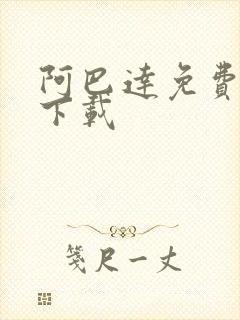 阿巴逹免費
下載
箋尺一丈